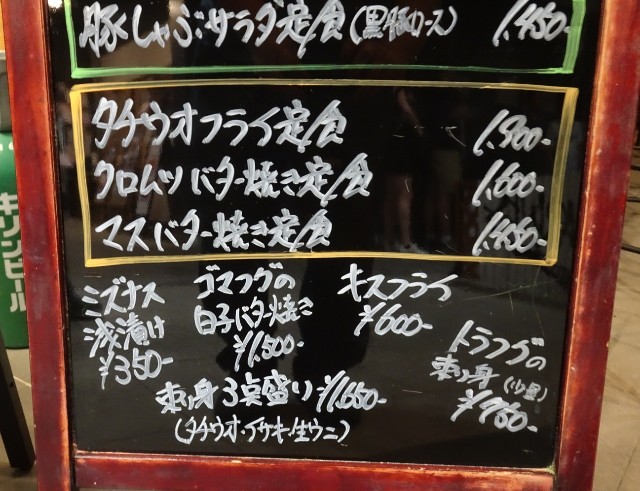 豚しゃぶサラダ定食(黒豚ロース) 1,450-
タチウオフライ定食 1,800-
クロムツバター焼き定食 1,600-
マスバター焼き定食 1,450-
ミズナス
浅漬け
¥350-
ゴマフグの
白子バター焼き
¥1,500-
キスフライ
¥600-
トラフグの
刺身(少量)
¥980-
刺身3点盛り ¥1,650-
(タチウオ・イサキ・生ウニ)
キリンビール